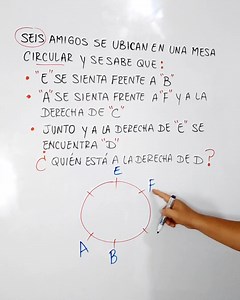 SEIS AMIGOS SE UBICAN EN UNA MESA
CIRCULAR Y SE SABE QUE:
• "E" SE SIENTA FRENTE A "B"
• "A" SE SIENTA FRENTE A "F" Y A LA
DERECHA DE "C"
• JUNTO Y A LA DERECHA DE "E" SE
ENCUENTRA "D"
¿QUIÉN ESTÁ A LA DERECHA DE D?
E
F
A
B